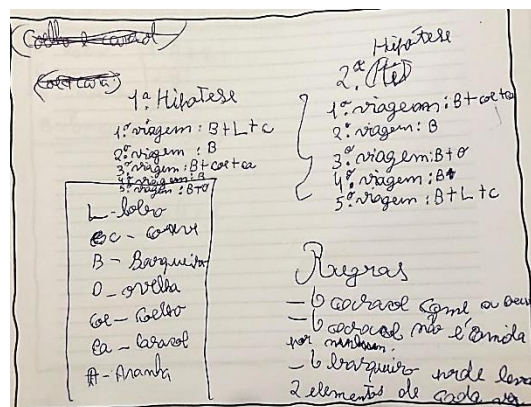 Coelho e caracol
Coe+cara:
1ª Hipótese
1ª viagem: B+L+c
2ª viagem: B
3ª viagem: B+coe+ca
4ª viagem: B
5ª viagem: B+O
L - lobo
c - couve
B - Barqueiro
O - ovelha
coe - coelho
Ca - Caracol
A - Aranha
Hipótese
2ª
1ª viagem: B+coe+ca
2ª viagem: B
3ª viagem: B+O
4ª viagem: B
5ª viagem: B+L+c
Regras
- O caracol come a
- O caracol não é comida
por nenhum.
- O barqueiro pode
2 elementos de cada vez